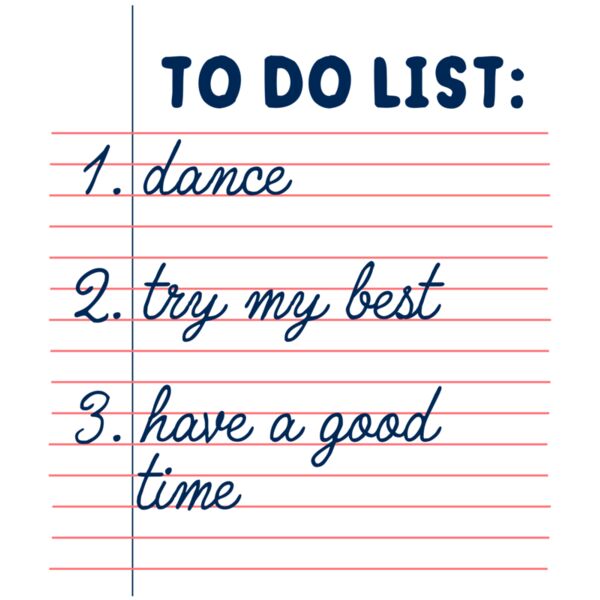 TO DO LIST:
1. dance
2. try my best
3. have a good
time